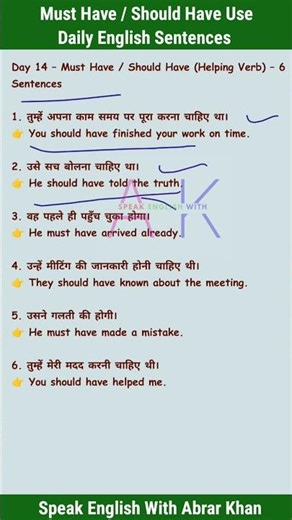 Must Have / Should Have Use
Daily English Sentences
Day 14 – Must Have / Should Have (Helping Verb) – 6
Sentences
1. तुम्हें अपना काम समय पर पूरा करना चाहिए था।
👉 You should have finished your work on time.
2. उसे सच बोलना चाहिए था।
👉 He should have told the truth.
AK
SPEAK ENGLISH WITH
3. वह पहले ही पहुँच चुका होगा।
👉 He must have arrived already.
4. उन्हें मीटिंग की जानकारी होनी चाहिए थी।
👉 They should have known about the meeting.
5. उसने गलती की होगी।
👉 He must have made a mistake.
6. तुम्हें मेरी मदद करनी चाहिए थी।
👉 You should have helped me.
Speak English With Abrar Khan